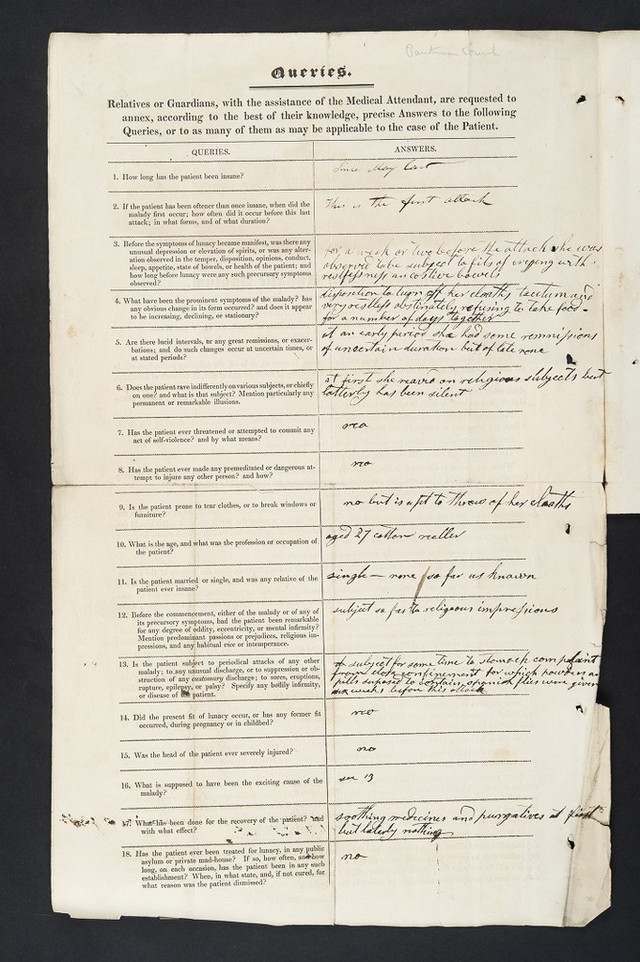 Queries.
Relatives or Guardians, with the assistance of the Medical Attendant, are requested to
annex, according to the best of their knowledge, precise Answers to the following
Queries, or to as many of them as may be applicable to the case of the Patient.
QUERIES.
ANSWERS.
1. How long has the patient been insane?
Since May last
2. If the patient has been oftener than once insane, when did the
malady first occur; how often did it occur before this last
attack; in what forms, and of what duration?
This is the first attack
3. Before the symptoms of lunacy became manifest, was there any
unusual depression or elevation of spirits, or was any alter-
ation observed in the temper, disposition, opinions, conduct,
sleep, appetite, state of bowels, or health of the patient; and
how long before lunacy were any such precursory symptoms
observed?
for a week or two before the attack she was
observed to be subject to fits of crying with
restlessness and costive bowels
4. What have been the prominent symptoms of the malady? has
any obvious change in its form occurred? and does it appear
to be increasing, declining, or stationary?
disposition to turn off her cloaths taciturn and
very restless obstinately refusing to take food -
for a number of days together
5. Are there lucid intervals, or any great remissions, or exacer-
bations; and do such changes occur at uncertain times, or
at stated periods?
at an early period she had some remissions
of uncertain duration but of late none
6. Does the patient rave indifferently on various subjects, or chiefly
on one? and what is that subject? Mention particularly any
permanent or remarkable illusions.
at first she raved on religious subjects but
latterly has been silent
7. Has the patient ever threatened or attempted to commit any
act of self-violence? and by what means?
no
8. Has the patient ever made any premeditated or dangerous at-
tempt to injure any other person? and how?
no
9. Is the patient prone to tear clothes, or to break windows or
furniture?
no but is apt to throw of her cloaths
10. What is the age, and what was the profession or occupation of
the patient?
aged 27 cotton reeller
11. Is the patient married or single, and was any relative of the
patient ever insane?
single — none so far as known
12. Before the commencement, either of the malady or of any of
its precursory symptoms, had the patient been remarkable
for any degree of oddity, eccentricity, or mental infirmity?
Mention predominant passions or prejudices, religious im-
pressions, and any habitual vice or intemperance.
subject so far to religious impressions
13. Is the patient subject to periodical attacks of any other
malady; to any unusual discharge, or to suppression or ob-
struction of any customary discharge; to sores, eruptions,
rupture, epilepsy, or palsy? Specify any bodily infirmity,
or disease of the patient.
subject for some time to stomach complaint
from close confinement for which powders and
pills supposed to contain spanish flies were given
six weeks before this attack
14. Did the present fit of lunacy occur, or has any former fit
occurred, during pregnancy or in childbed?
no
15. Was the head of the patient ever severely injured?
no
16. What is supposed to have been the exciting cause of the
malady?
see 13
17. What has been done for the recovery of the patient? and
with what effect?
soothing medicines and purgatives at first
but laterly nothing
18. Has the patient ever been treated for lunacy, in any public
asylum or private mad-house? If so, how often, and how
long, on each occasion, has the patient been in any such
establishment? When, in what state, and, if not cured, for
what reason was the patient dismissed?
no